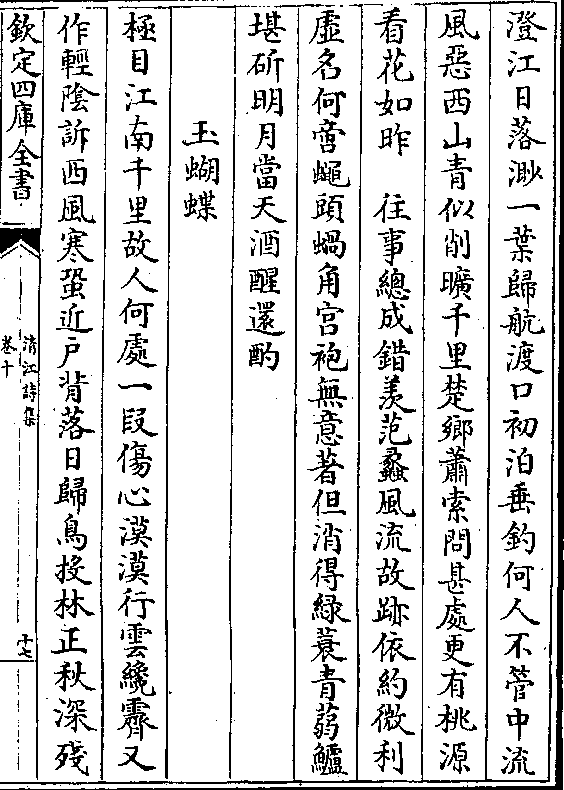 澄江日落渺一葉歸航渡口初泊垂釣何人不管中流
風惡西山青似削曠千里楚鄉蕭索問甚處更有桃源
看花如昨　往事總成錯羨范蠡風流故跡依約微利
虛名何啻蠅頭蝸角宫袍無意著但消得緑蓑青蒻鱸
堪斫明月當天酒醒還酌
玉蝴蝶
極目江南千里故人何處一段傷心漠漠行雲纔霽又
作輕陰訴西風寒蛩近戶背落日歸鳥投林正秋深殘
欽定四庫全書
清江詩集
卷十
十七